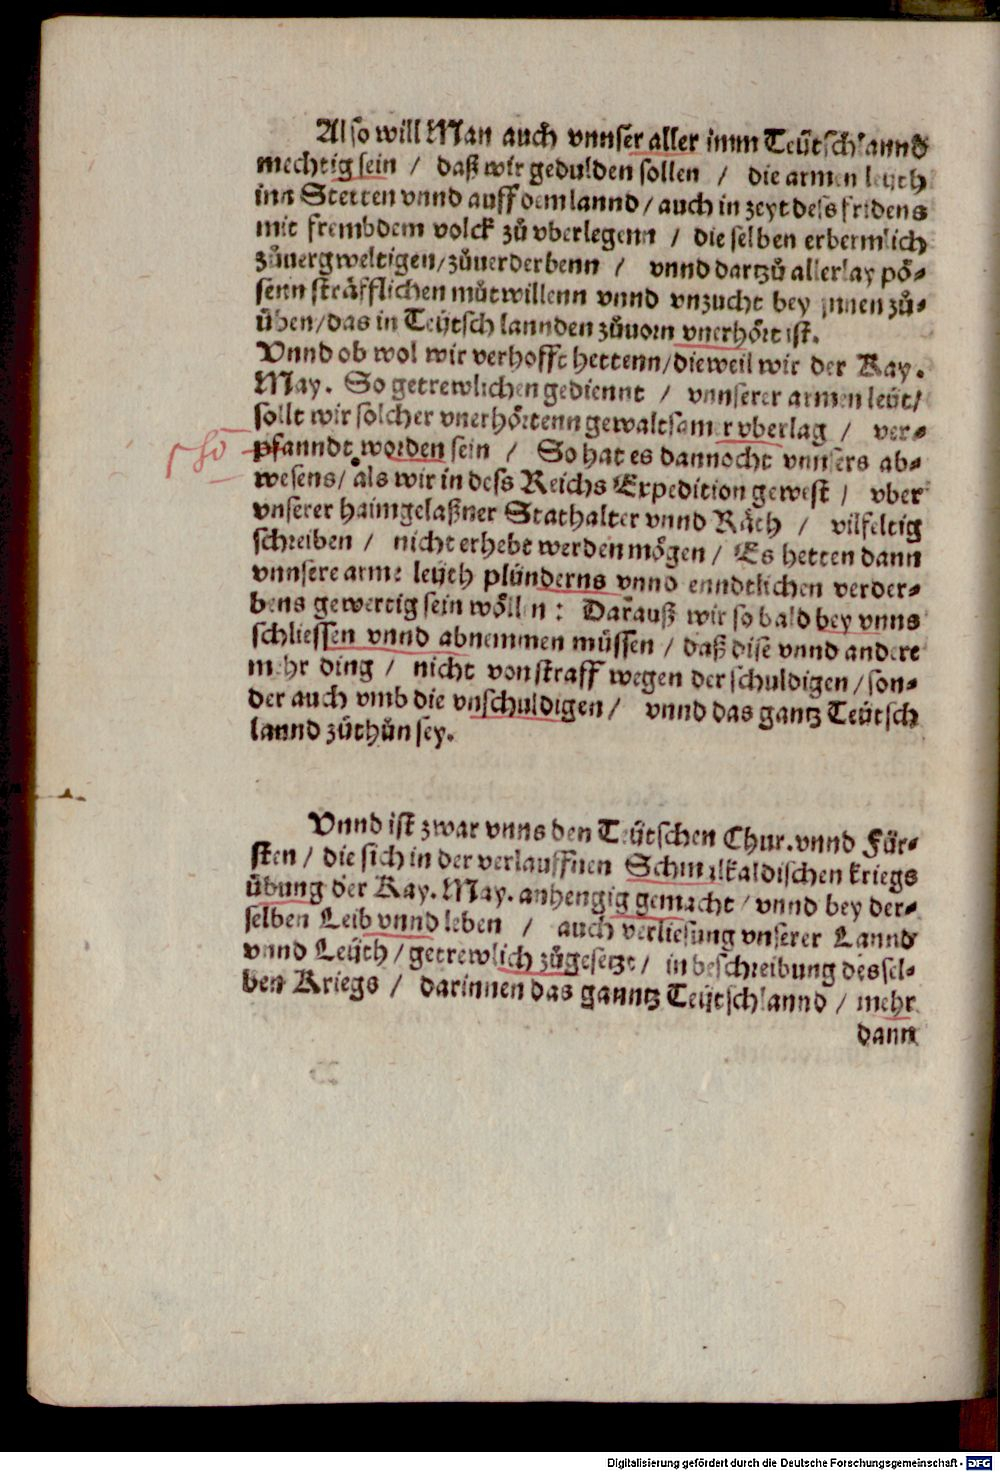 Also will Man auch vnnser aller inm Teütschlannd
mechtig sein / daß wir gedulden sollen / die armen leyth
inn Stetten vnnd auff dem lannd / auch in zeyt dess fridens
mit frembdem volck zů vberlegenn / die selben erbermlich
zůuergweltigen / zůuerderbenn / vnnd dartzů allerlay pö-
senn sträfflichen můtwillenn vnnd vnzucht bey jnnen zů-
üben / das in Teütsch lannden zůuorn vnerhört ist.
Vnnd ob wol wir verhofft hettenn / dieweil wir der Kay.
May. So getrewlichen gediennt / vnnserer armen leüt /
sollt wir solcher vnerhörtenn gewaltsamer vberlag / ver-
pfanndt worden sein / So hat es dannocht vnnsers ab-
wesens / als wir in dess Reichs Expedition gewest / vber
vnserer haimgelaßner Stathalter vnnd Räth / vilfeltig
schreiben / nicht erhebt werden mögen / Es hetten dann
vnnsere arme leyth plünderns vnnd enndtlichen verder-
bens gewertig sein wöllen : Darauß wir so bald bey vnns
schliessen vnnd abnemmen müssen / daß dise vnnd andere
mehr ding / nicht von straff wegen der schuldigen / son-
der auch vmb die vnschuldigen / vnnd das gantz Teütsch
lannd zůthůn sey.
Vnnd ist zwar vnns den Teütschen Chur. vnnd Für-
sten / die sich in der verlauffnen Schmalkaldischen kriegs
übung der Kay. May. anhengig gemacht / vnnd bey der-
selben Leib vnnd leben / auch verliesung vnserer Lannd
vnnd Leyth / getrewlich zůgesetzt / in beschreibung dessel-
ben Kriegs / darinnen das ganntz Teütschlannd / mehr
dann
Digitalisierung gefördert durch die Deutsche Forschungsgemeinschaft - DFG